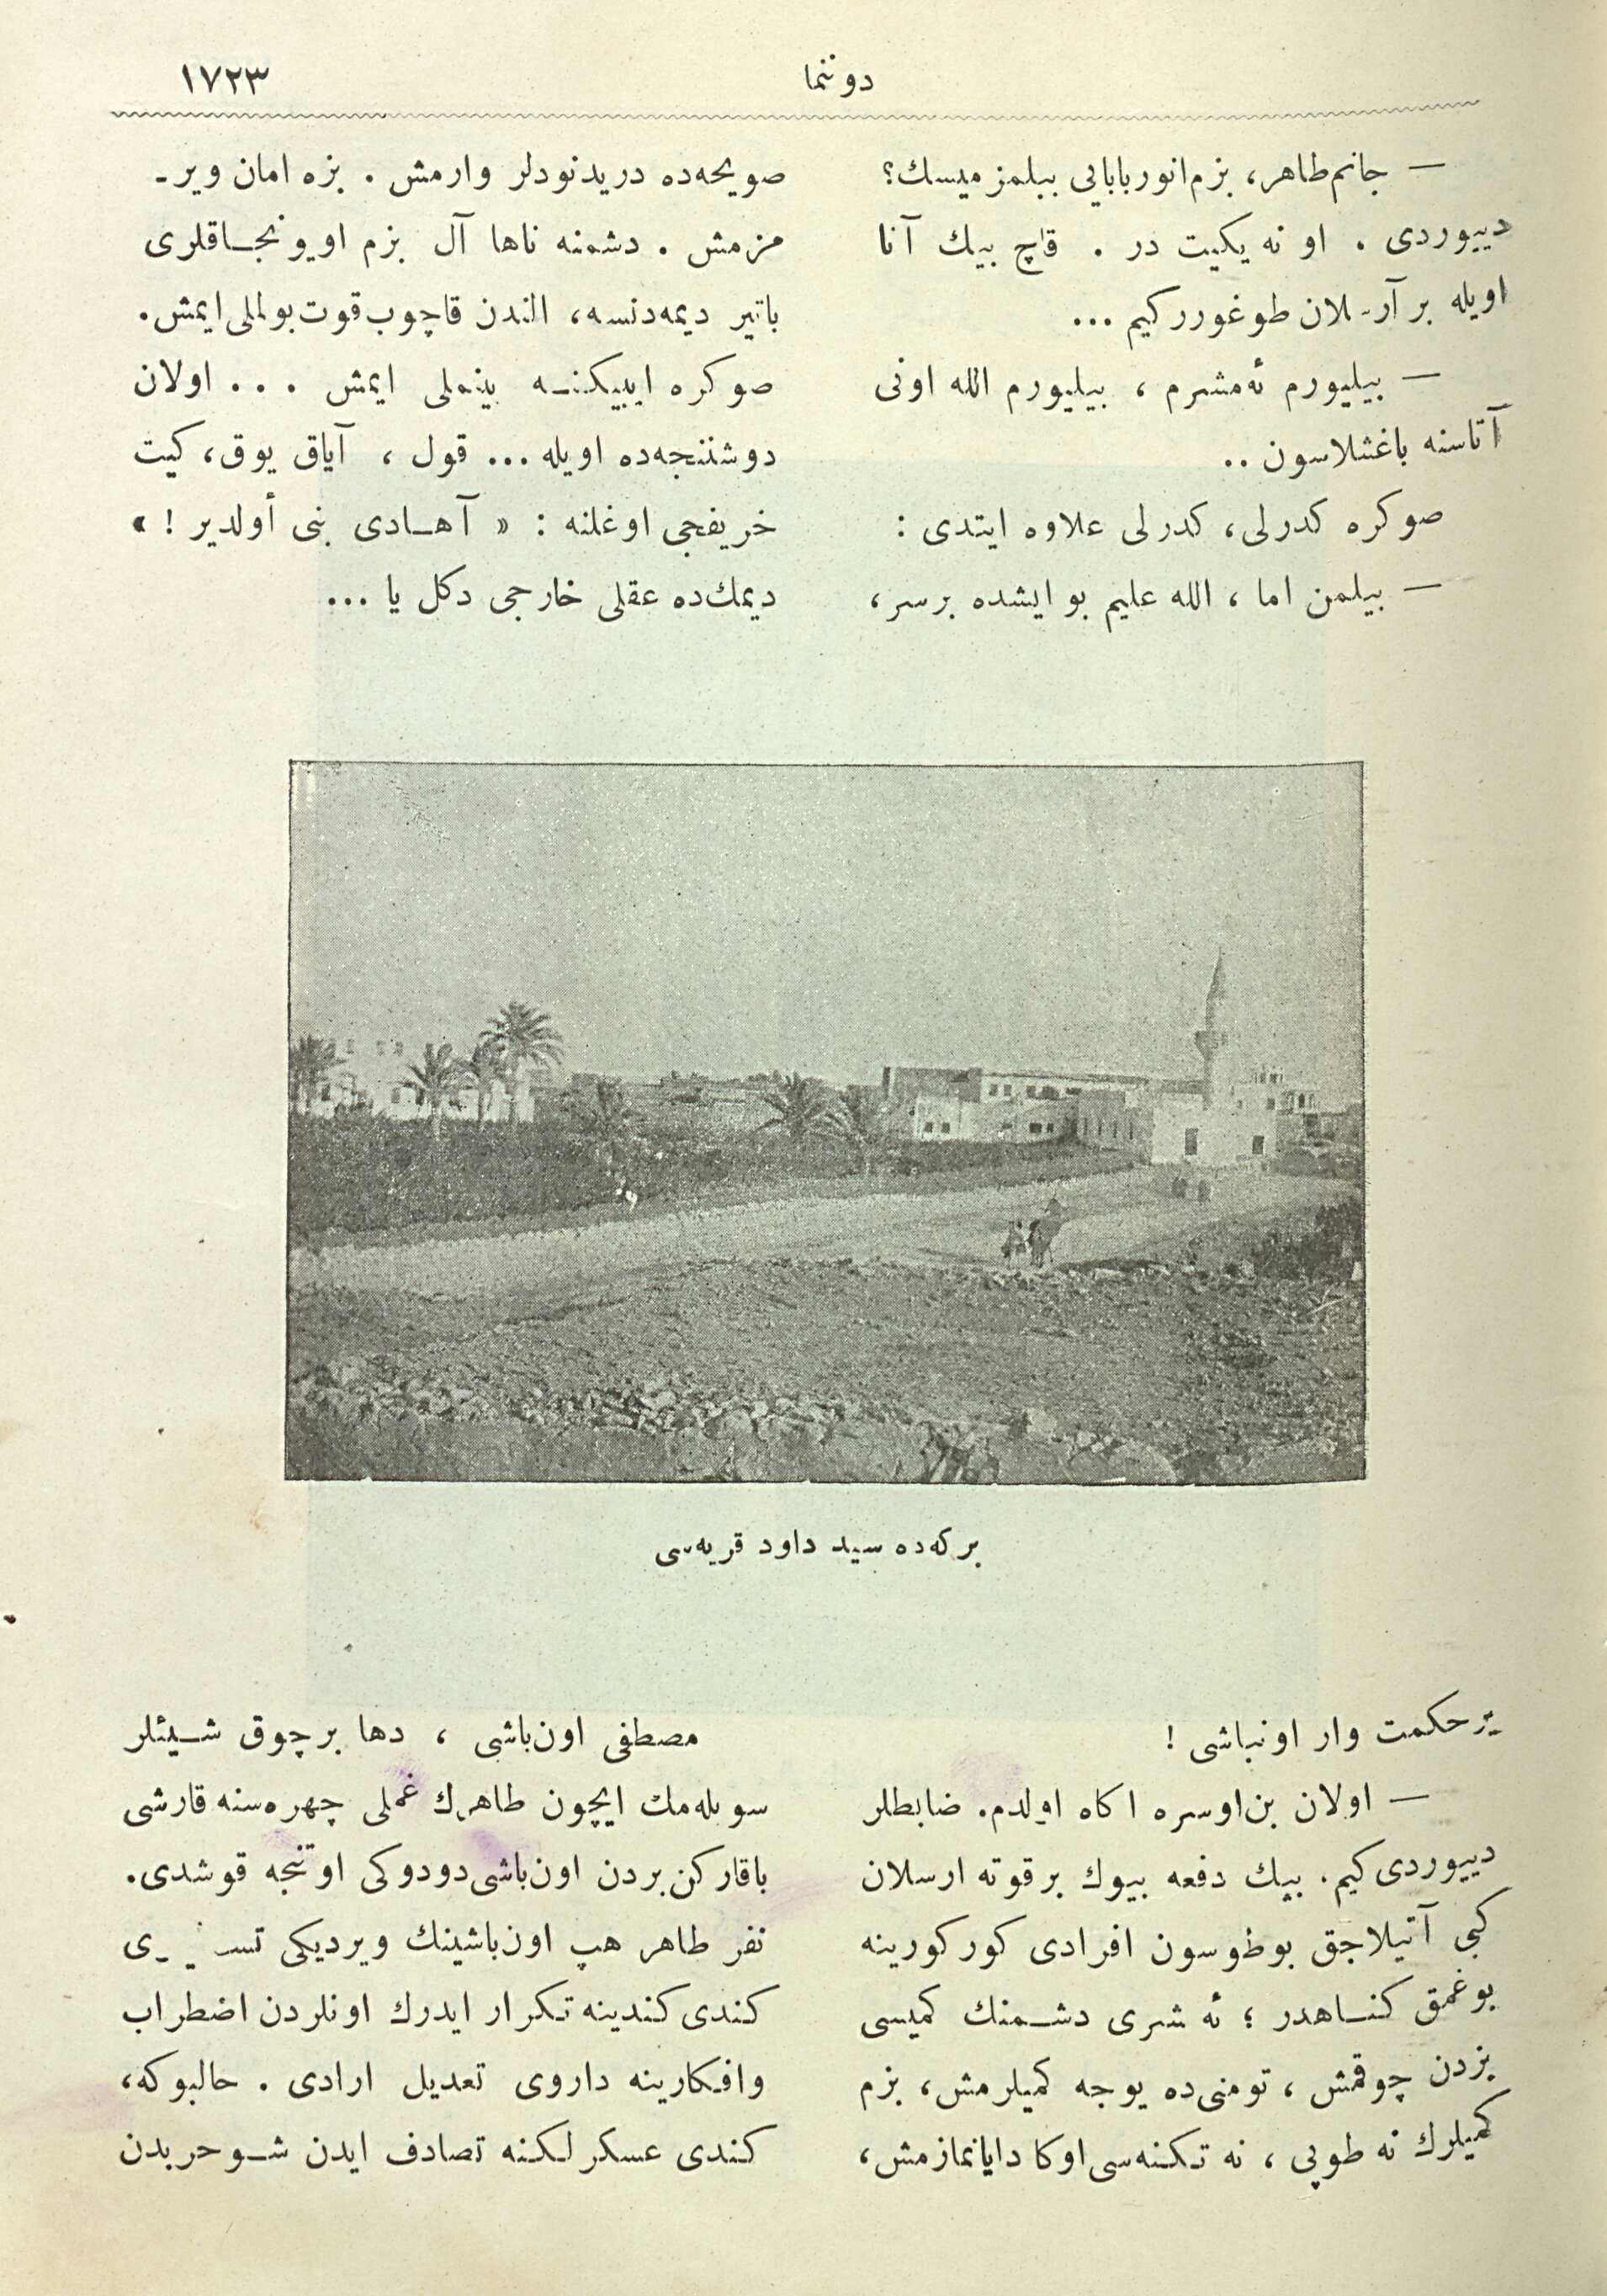 دوننما
١٧٢٣
— جانم طاهر، بزم انور بابایی بیلمز میسك؟
دییوردی . او نه یکیت در . قاچ بیك آنا
اویله بر آرسلان طوغوررکیم ...
— بیلیورم ئه مشرم ، بیلیورم الله اونی
آتاسنه باغشلاسون ..
صوکره کدرلی، کدرلی علاوه ایتدی :
— بیلمن اما ، الله علیم بو ایشده برسر،
یرحکمت وار اونباشی !
— اولان بن اوسره اکاه اولدم. ضابطلر
دییوردی کیم. بیك دفعه بیوك برقوته ارسلان
کبی آتیلاجق بوطوسون افرادی کورکورینه
بوغمق کناهدر ؛ ئه شری دشمنك کمیسی
بزدن چوقمش ، تومنی ده یوجه کمیلرمش، بزم
کمیلرك نه طوپی ، نه تکنه سی اوکا دایانمازمش،
صویحه ده دریدنودلر وارمش . بزه امان ویر-
مزمش . دشمنه ناها آل بزم اویونجاقلری
باتیر دیمه دنسه، الندن قاچوب قوت بولملی ایمش.
صوکره ایییکنه ینملی ایمش ... اولان
دوشننجه ده اویله ... قول ، آیاق یوق، کیت
خریفجی اوغلنه : « آهادی بنی أولدیر ! »
دیمك ده عقلی خارجی دکل یا ...
مصطفی اون باشی ، دها برچوق شیئلر
سویله مك ایچون طاهرك غملی چهره سنه قارشی
باقارکن بردن اون باشی دودوکی اوتنجه قوشدی.
نفر طاهر هپ اون باشینك ویردیکی
کندی کندینه تکرار ایدرك اونلردن اضطراب
وافکارینه داروی تعدیل ارادی . حالبوکه،
کندی عسکرلکنه تصادف ایدن شو حربدن
برکه ده سید داود قریه سی